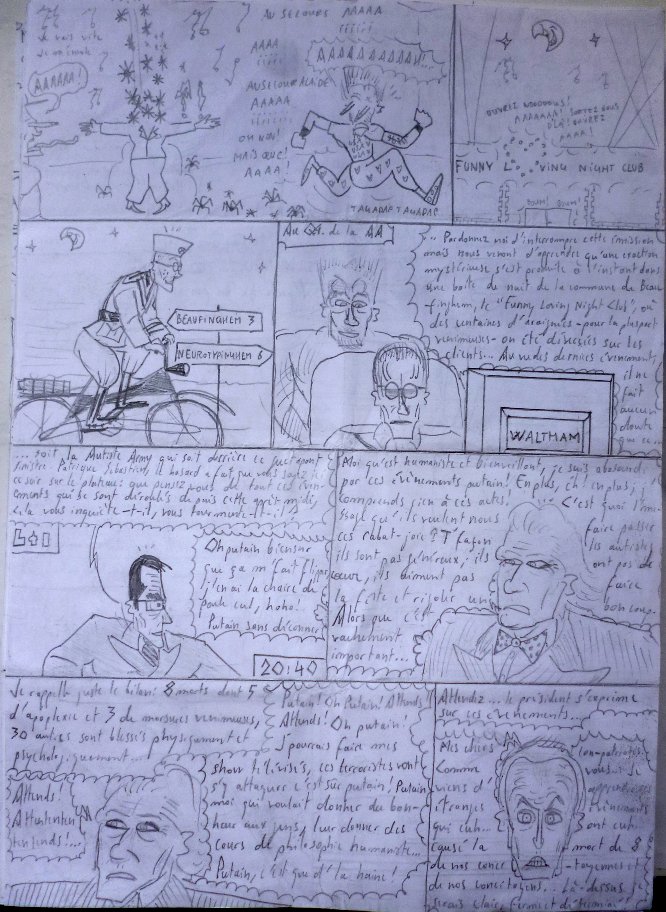 Je vais vite
AAAAAA!
AU SECOURS AAAAA
AAAA
AU SECOUR ALAIDE
AAAAA
OH NON!
MAIS QUE!
AAAA!
AAAAAAAAAAH!
TAGADAP TAGADAP
OUVREZ
AAAAAA! SORTEZ NOUS
DLA! OUVREZ
AAAA!
FUNNY LOVING NIGHT CLUB
BOUM! BOUM!
BEAUFINGHEM 3
NEUROTYPINGHEM 6
Au Q.G. de la AA
... Pardonnez moi d'interrompre cette émission
mais nous venont d'apprendre qu'une exaction
mystérieuse s'est produite à l'instant dans
une boite de nuit de la commune de Beau
-finghem, le "Funny Loving Night Club", où
des centaines d'araignées - pour la pluspart
venimeuses - on été diversées sur les
clients... Au vu des derniers événements,
il ne
fait
aucun
doute
que ce...
WALTHAM
... soit la Autiste Army qui soit derrière ce
sinistre. Patrique Sébastien, le hasard a fait que vous soyez
ce soir sur le plateau: que pensez vous de tout ces
éments qui se sont déroulés depuis cette après midi,
cela vous inquiète-t-il, vous tourmente-t-il?
Oh putain biensur
que ça m'fait flipper
j'en ai la chaire de
poule cul, hoho!
Putain sans déconner
20:40
Moi qu'est humaniste et bienveillant, je suis abasourdi
par ces évènements putain! En plus, eh! en plus, j'
comprends rien à ces actes!
C'est quoi l'
qu'ils veulent nous
faire passer
ces rabat-joie? T'façon
les autistes
ils sont pas généreux, ils
ont pas de
cœur, ils aiment pas
faire
la fête et rigoler un
bon coup.
Alors que c'est
vachement
important...
Je rappelle juste le bilan: 8 morts dont 5
d'apoplexie et 3 de morsures venimeuses,
30 autres sont blessés physiquement et
psychologiquement...
Attends!
Attententen
tentends!...
Putain! Oh Putain! Attends!
Attends! Oh putain!
J'pourrais faire mes
show télévisés, ces terroristes vont
s'y attaquer c'est sûr putain! Putain
moi qui voulait donner du bon-
heur aux gens, leur donner des
cours de philosophie humaniste...
Putain, c'est que d'la haine!
Attendez... le président s'exprime
sur ces évènements...
Mes chers
compatriotes,
Comme
vous
viens d'
apprendre
étranges
évènements
qui euh...
ont euh...
causé la
mort de 8
de nos conci
-toyennes et
de nos concitoyens... Là-dessus
serais clair, ferme et déterminé!